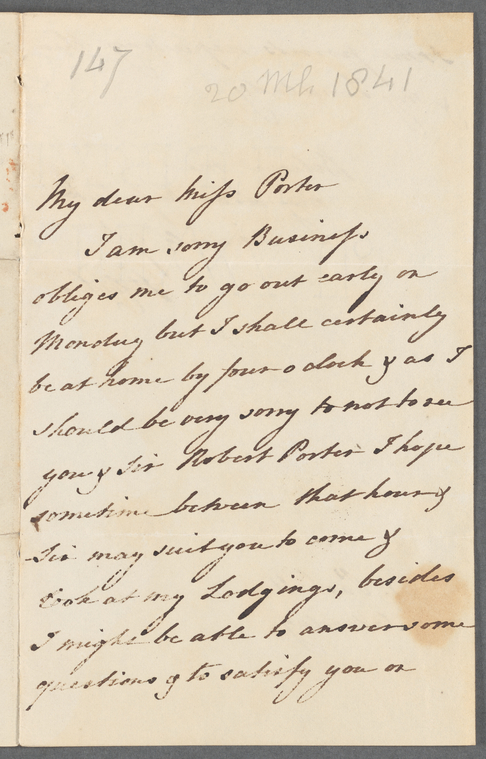 147
20 Mh 1841
My dear Miss Porter
I am sorry Business
obliges me to go out early on
Monday but I shall certainly
be at home by four o clock & as I
should be very sorry to not to see
you & Sir Robert Porter I hope
sometime between that hour &
Six may suit you to come &
look at my Lodgings, besides
I might be able to answer some
questions & to satisfy you on